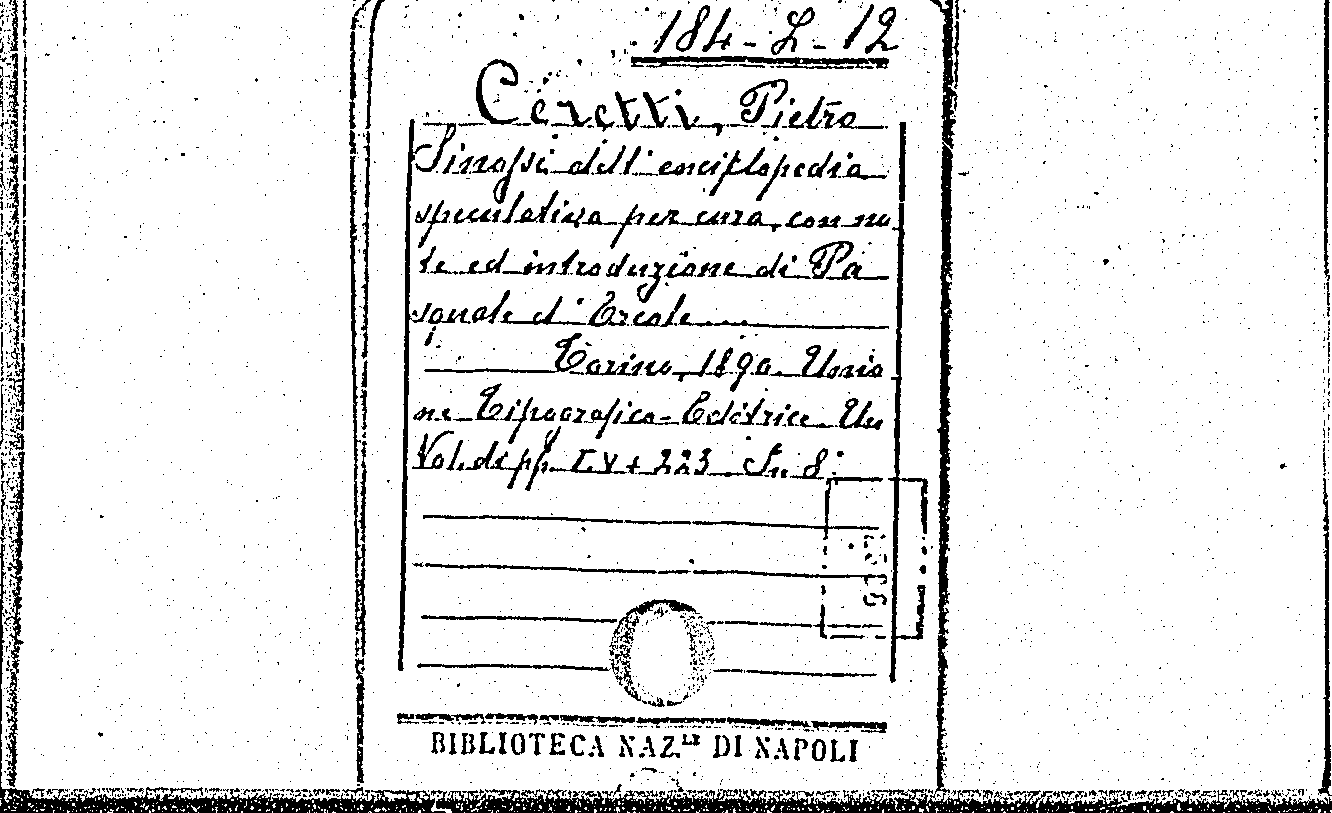 184-L-12
Ceretti, Pietro
Sinossi dell'enciclopedia
speculativa per cura, con no
te ed introduzione di Pa
squale d'Ercole....
Torino, 1890. Unio
ne Tipografico-Editrice. Un
Vol. di pp. LV + 223 In 8°
BIBLIOTECA NAZ.LE DI NAPOLI